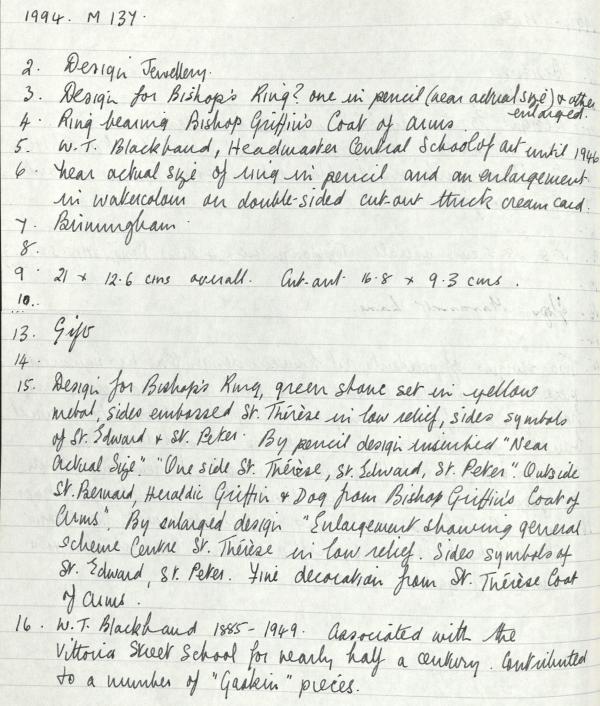 1994. M 137.
2. Design Jewellery.
3. Design for Bishop's Ring? one in pencil (near actual size) & other
enlarged.
4. Ring bearing Bishop Griffin's Coat of arms
5. W.T. Blackband, Headmaster Central School of art until 1946
6. Near actual size of ring in pencil and an enlargement
in watercolour on double-sided cut-out thick cream card.
7. Birmingham.
8.
9. 21 x 12.6 cms overall. Cut-out 16.8 x 9.3 cms.
10.
13. Gift
14.
15. Design for Bishop's Ring, green stone set in yellow
metal, sides embossed St. Thérèse in low relief, sides symbols
of St. Edward & St. Peter. By pencil design inscribed "Near
actual Size". "One side St. Thérèse, St. Edward, St. Peter". Outside
St. Bernard, Heraldic Griffin & Dog from Bishop Griffin's Coat of
Arms". By enlarged design "Enlargement showing general
scheme Centre St. Thérèse in low relief. Sides symbols of
St. Edward, St. Peter. Fine decoration from St. Thérèse Coat
of arms.
16. W.T. Blackband 1885-1949. Associated with the
Vittoria Street School for nearly half a century. Contributed
to a number of "Gaskin" pieces.